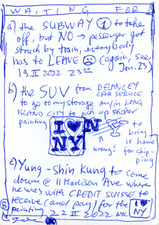 WAITING FOR
a) the SUBWAY ① to take
off, but NO → passenger got
struck by train, everybody
has to LEAVE ☹ (again, see
19 II 2022 23
b) the SUV from DELANCEY
CAR SERVICE
to go to my storage in LONG
ISLAND CITY to pick up
painting
I ♥ NY
NO
wrong!
to
bring it
home for
ship-
ping
c) Yung-shin Kung to come
down @ 11 Madison Ave where
he was with CREDIT SUISSE to
receive (and pay) for the
painting 22 II 2022 NYC
I ♥ NY